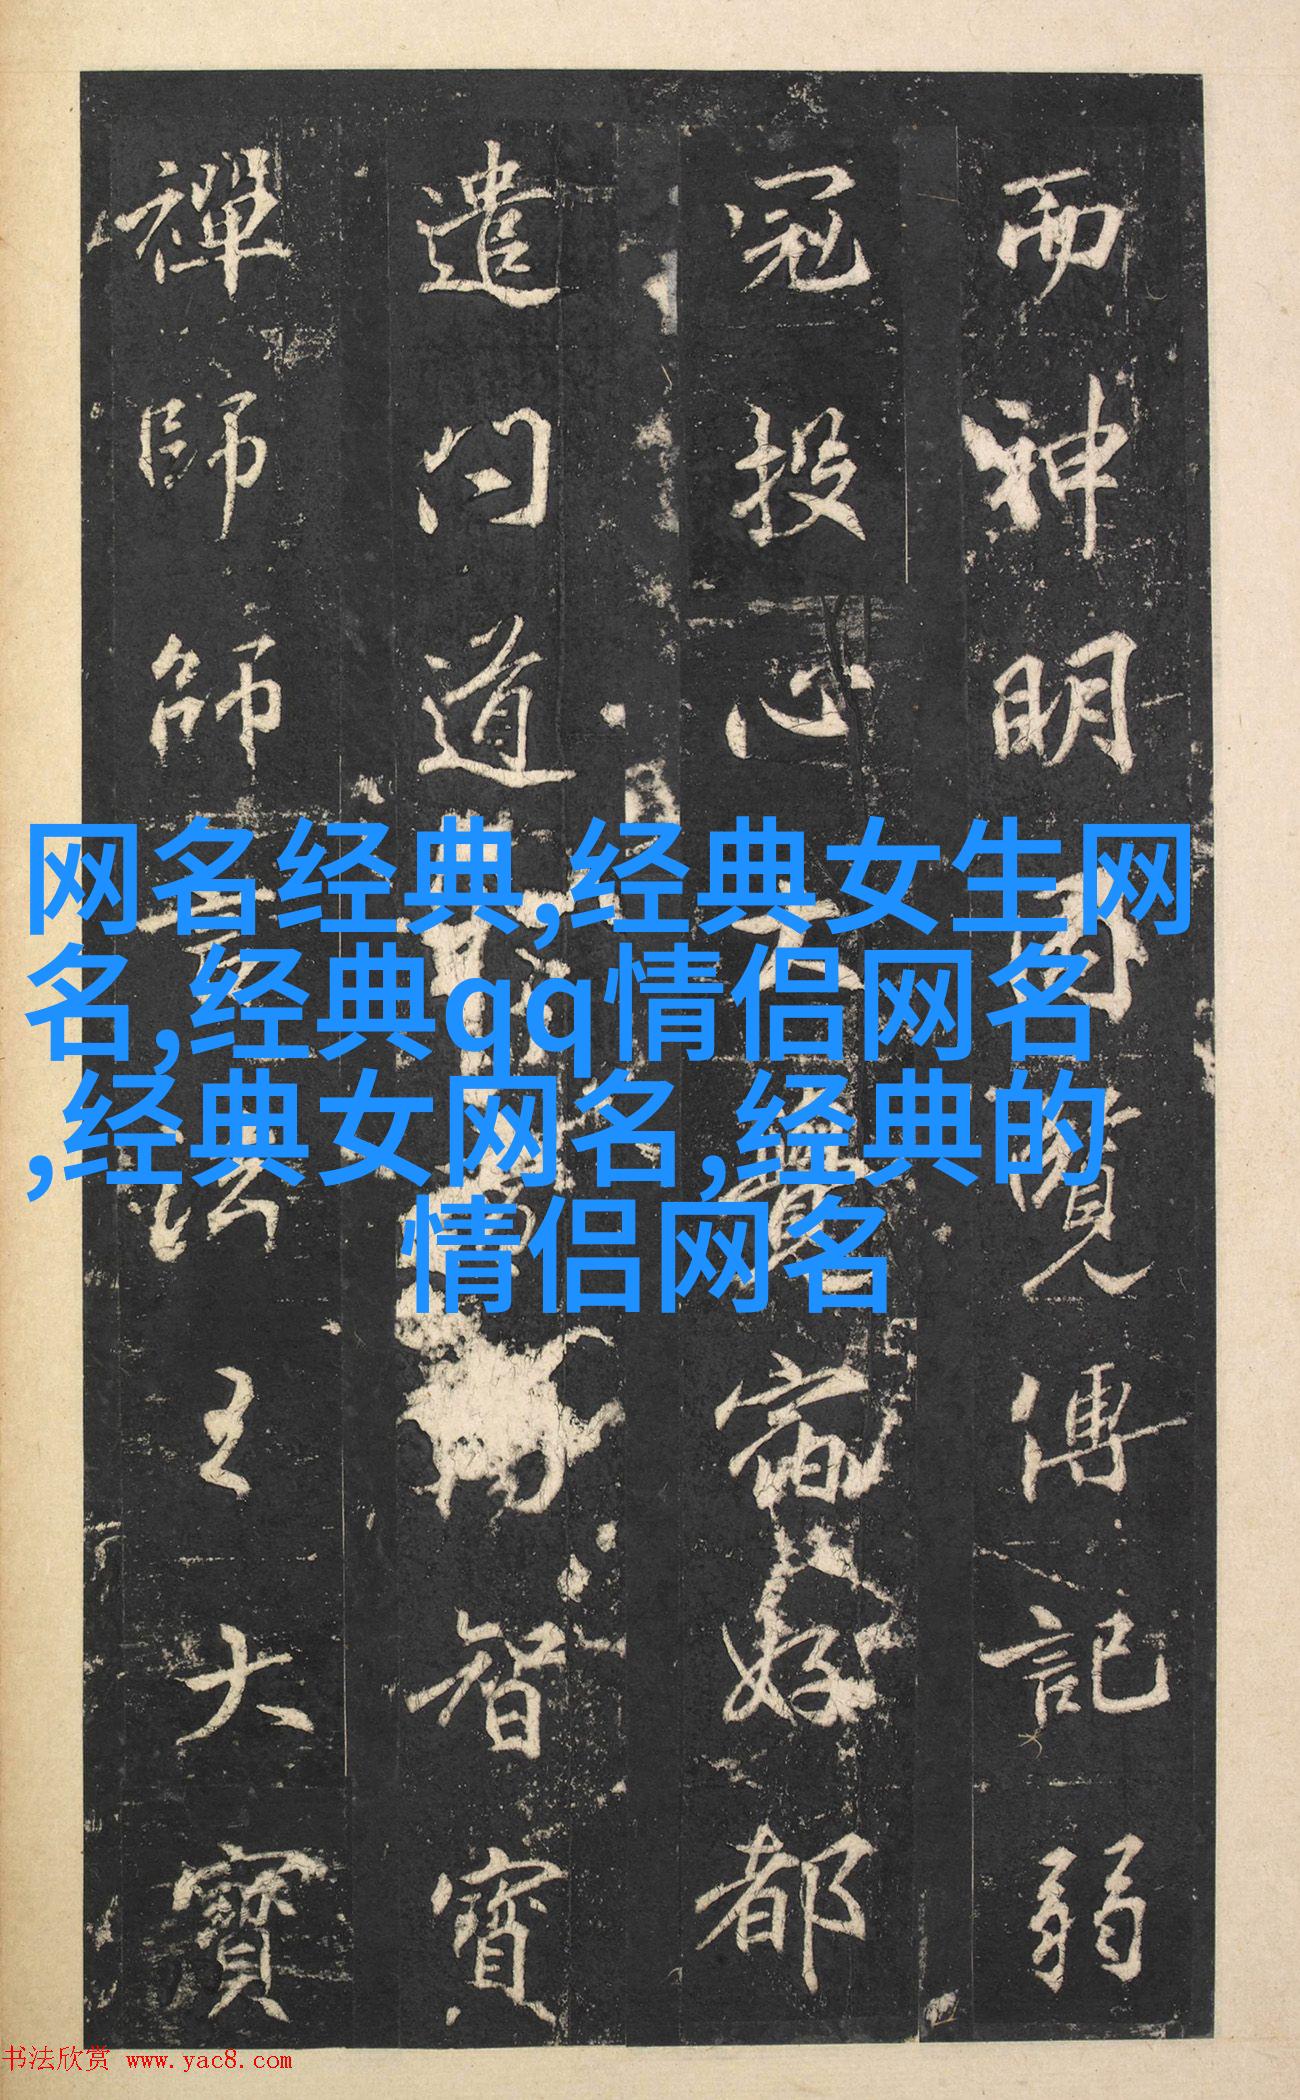 而神明周覽傳記弱
冠投心之賢宿好都
遣問道智寶
禪師師言法王大寶
网名经典,经典女生网
名,经典qq情侣网名
,经典女网名,经典的
情侣网名
书法欣赏 www.yac8.com